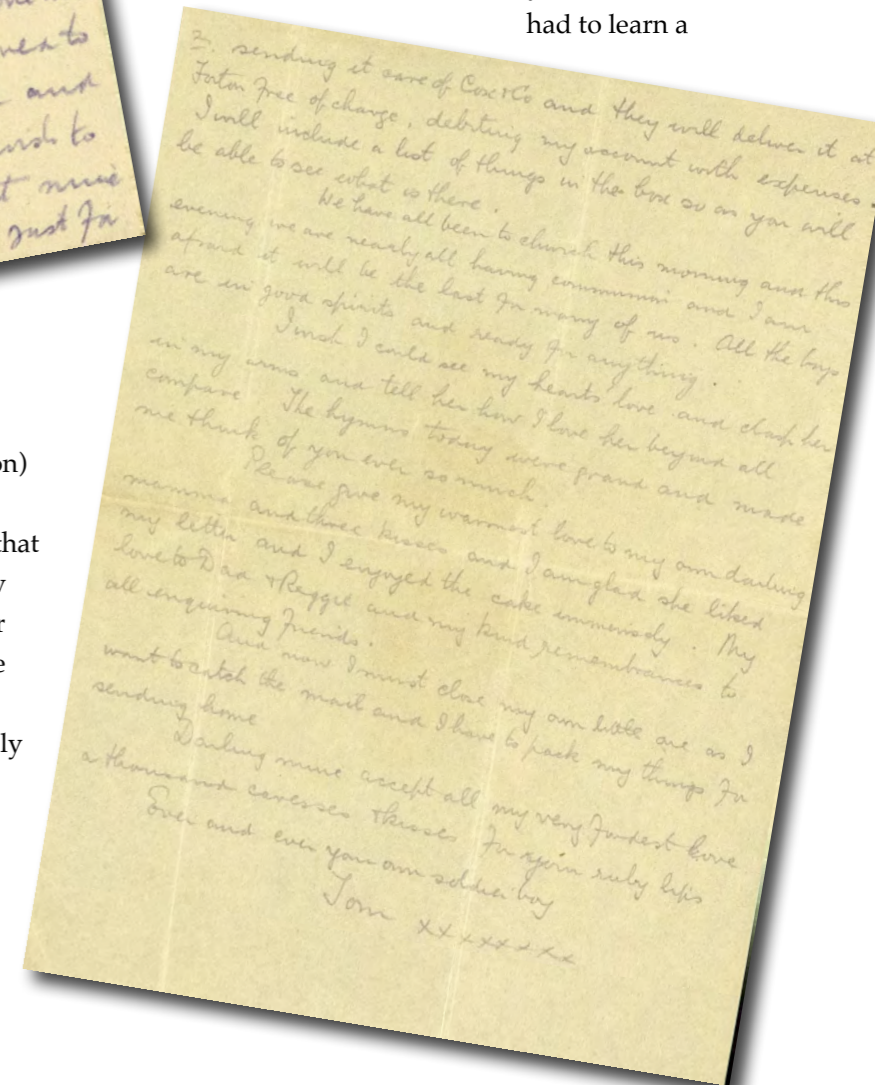 had to learn a
ned to
and
wish to
t mine
Just for
on)
that
y
r
e
ly
2. sending it care of Cox & Co and they will deliver it at
Forton free of charge, debiting my account with expenses.
I will include a list of things in the box so as you will
be able to see what is there.
We have all been to church this morning and this
evening we are nearly all having communion and I am
afraid it will be the last for many of us. All the boys
are in good spirits and ready for anything.
I wish I could see my hearts love and clasp her
in my arms and tell her how I love her beyond all
compare. The hymns today were grand and made
me think of you ever so much.
Please give my warmest love to my own darling
mamma and three kisses and I am glad she liked
my letter and I enjoyed the cake immensely. My
love to Dad & Reggie and my kind remembrances to
all enquiring friends.
And now I must close my own little one as I
want to catch the mail and I have to pack my things for
sending home
Darling mine accept all my very fondest love
a thousand caresses & kisses for your ruby lips
Ever and ever your own soldier boy
Tom xxxxxxxx